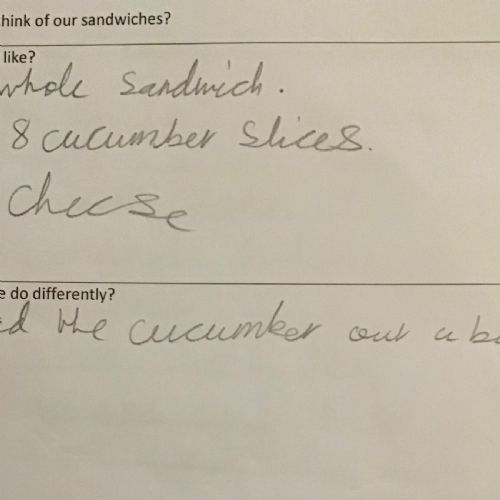 hink of our sandwiches?
like?
whole sandwich.
8 cucumber slices.
cheese
e do differently?
ed the cucumber out a b